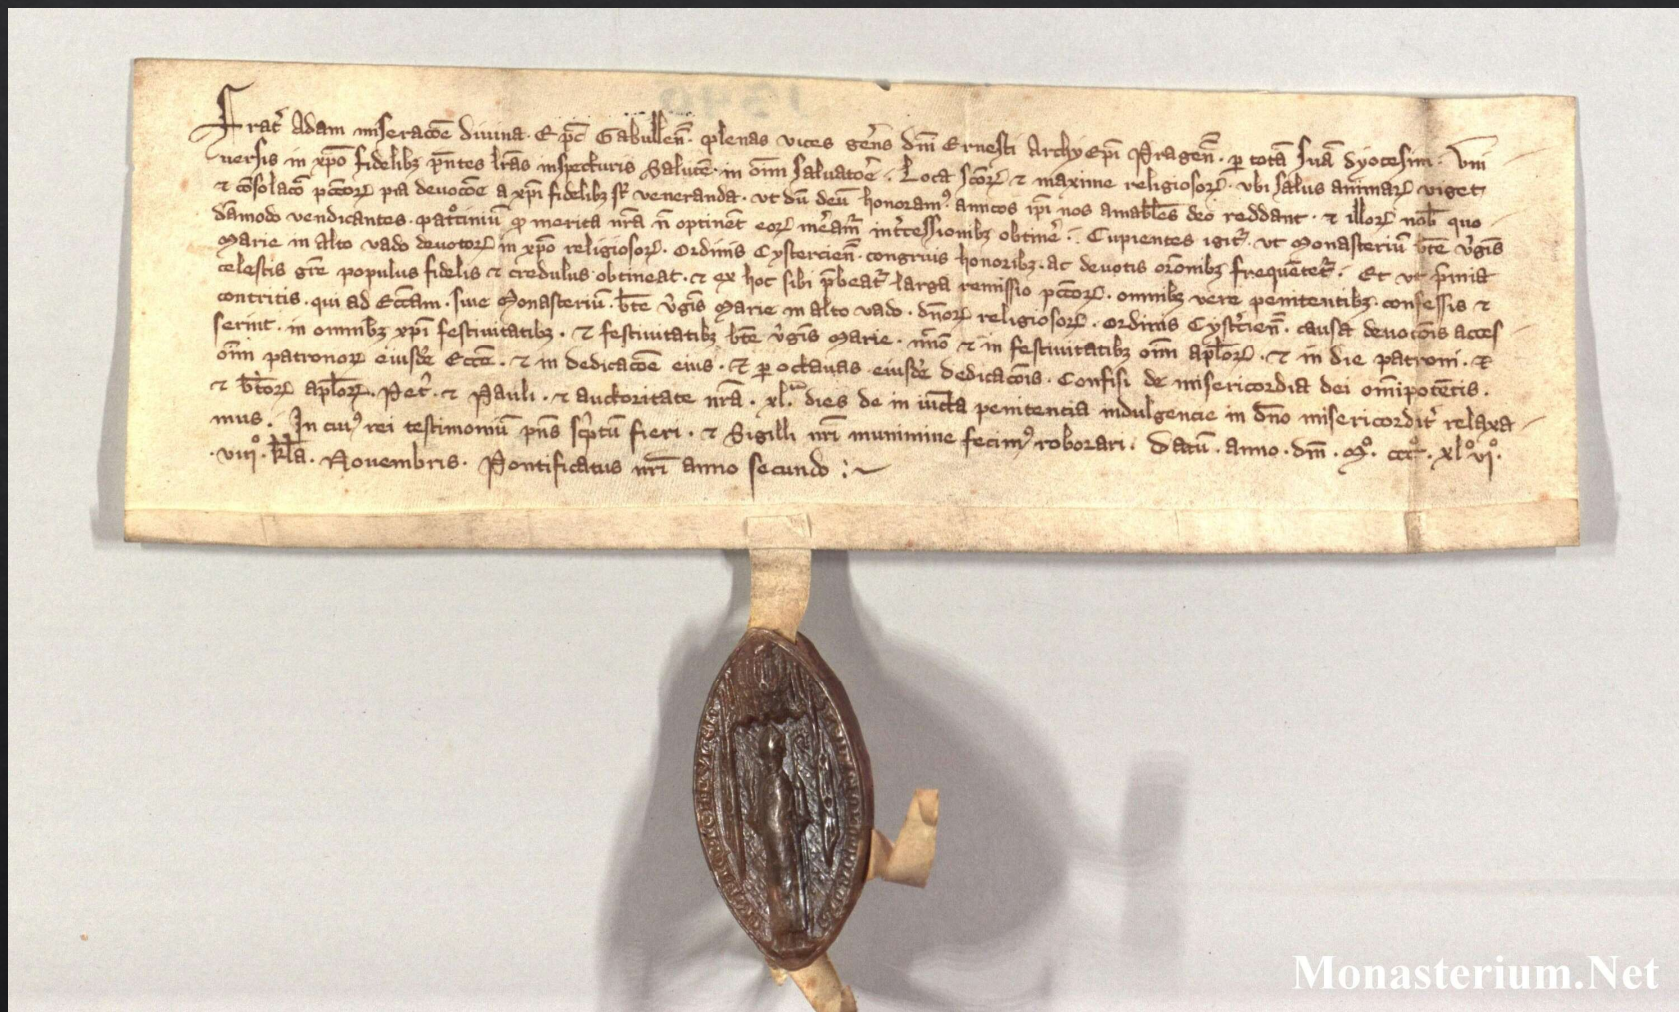 Frat̄ Adam miseracōe diuina. Ep̄c Gabullen̄. plenas vices gerēs dn̄i Ernesti Archyep̄i Pragen̄. p̲ totā suā dyocesim. Vni
uersis in xp̄o fidelibꝫ p̄ntes lr̄as inspecturis Salutē. in om̄i saluatoē. Loca sc̄orꝝ ⁊ maxime religiosorꝝ. vbi salus animarꝝ viget
⁊ cōsolacō pcc̄orꝝ pia deuocōe a xp̄i fidelibꝫ sūt veneranda. vt dū deū honoramꝰ. amicos ip̄i nos amabiles deo reddant. ⁊ illorꝝ nob̄ quo
dāmodo vendicantes. patrociniū qͦ merita nr̄a n̄ optinēt eorꝝ mēam᷑ int̄cessionibꝫ obtinē. Cupientes igit᷑. vt Monasteriū bt̄e v̄gīs
Marie in alto vado deuotorꝝ in xp̄o religiosorꝝ. ordinis Cystercien̄. congruis honoribꝫ. ac deuotis or̄onibꝫ frequētet᷑. Et vt p̄mia
celestis gr̄e populus fidelis ⁊ credulus obtineat. ⁊ ex hoc sibi p̄beat᷑ larga remissio pcc̄orꝝ. omnibꝫ vere penitentibꝫ. confessis ⁊
contritis. qui ad Ecc̄am. siue Monasteriū. bt̄e v̄gīs Marie in alto vado. dn̄orꝝ religiosorꝝ. ordinis Cyst̄cien̄. causa deuocōis acces
serint. in omnibꝫ xp̄i festiuitatibꝫ. ⁊ festiuitatibꝫ bt̄e v̄gīs Marie. n̄no ⁊ in festiuitatibꝫ om̄i apl̄orꝝ. ⁊ in die patroni. ⁊
om̄i patronorꝝ eiusdē Ecc̄e. ⁊ in dedicacōe eius. Et p̲ octauas eiusdē dedicacōis. Confisi de misericordia dei om̄ipotētis.
⁊ bt̄orꝝ apl̄orꝝ. Pet̄. ⁊ Pauli. ⁊ auctoritate nr̄a. xl. dies de in iūcta penitencia indulgencie in dn̄o misericordit̄ relaxa
mus. In cuiꝰ rei testimoniū p̄ns sc̄ptū fieri. ⁊ Sigilli nr̄i munimine fecimꝰ roborari. Datū. anno. dn̄i. Mͦ. cccͦ. xlͦvjͦ.
. viijͦ. kl̄a. Nouembris. Pontificatus nr̄i anno secundo
Monasterium.Net